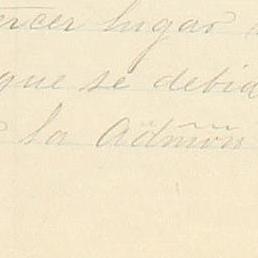 tercer lugar
que se debid
la Admon